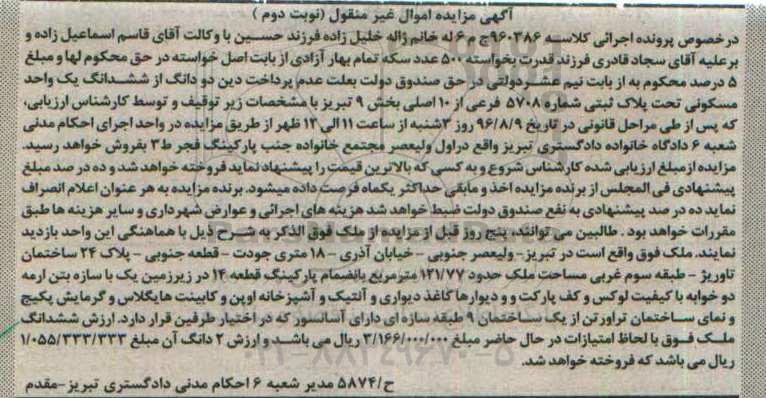 آگهی مزایده اموال غیر منقول (نوبت دوم )
درخصوص پرونده اجرائی کلاسه ۹۶۰۳۸۶ج م ۶ له خانم ژاله خلیل زاده فرزند حسین با وکالت آقای قاسم اسماعیل زاده و
برعلیه آقای سجاد قادری فرزند قدرت بخواسته ۵۰۰ عدد سکه تمام بهار آزادی از بابت اصل خواسته در حق محکوم لها و مبلغ
۵ درصد محکوم به از بابت نیم عشر دولتی در حق صندوق دولت بعلت عدم پرداخت دین دو دانگ از ششدانگ یک واحد
مسکونی تحت پلاک ثبتی شماره ۵۷۰۸ فرعی از ۱۰ اصلی بخش ۹ تبریز با مشخصات زیر توقیف و توسط کارشناس ارزیابی،
که پس از طی مراحل قانونی در تاریخ ۹۶/۸/۹ روز ۳شنبه از ساعت ۱۱ الی ۱۲ ظهر از طریق مزایده در واحد اجرای احکام مدنی
شعبه ۶ دادگاه خانواده دادگستری تبریز واقع دراول ولیعصر مجتمع خانواده جنب پارکینگ فجر ط۳ بفروش خواهد رسید.
مزایده ازمبلغ ارزیابی شده کارشناس شروع و به کسی که بالاترین قیمت را پیشنهاد نماید فروخته خواهد شد و ده در صد مبلغ
پیشنهادی فی المجلس از برنده مزایده اخذ و مابقی حداکثر یکماه فرصت داده میشود. برنده مزایده به هر عنوان اعلام انصراف
نماید ده در صد پیشنهادی به نفع صندوق دولت ضبط خواهد شد هزینه های اجرائی و عوارض شهرداری و سایر هزینه ها طبق
مقررات خواهد بود . طالبین می توانند، پنج روز قبل از مزایده از ملک فوق الذکر به شرح ذیل با هماهنگی این واحد بازدید
نمایند. ملک فوق واقع است در تبریز- ولیعصر جنوبی - خیابان آذری - ۱۸ متری جودت - قطعه جنوبی - پلاک ۲۴ ساختمان
تاوریژ - طبقه سوم غربی مساحت ملک حدود ۱۲۱/۷۷ مترمربع بانضمام پارکینگ قطعه ۱۴ در زیرزمین یک با سازه بتن ارمه
دو خوابه با کیفیت لوکس و کف پارکت و و دیوارها کاغذ دیواری و آنتیک و آشپزخانه اوپن و کابینت هایگلاس و گرمایش پکیج
و نمای ساختمان تراورتن از یک ساختمان ۹ طبقه سازه ای دارای آسانسور که در اختیار طرفین قرار دارد. ارزش ششدانگ
ملک فوق با لحاظ امتیازات در حال حاضر مبلغ ۳/۱۶۶/۰۰۰/۰۰۰ ریال می باشد و ارزش ۲ دانگ آن مبلغ ۱/۰۵۵/۳۳۳/۳۳۳
ریال می باشد که فروخته خواهد شد.
ح/۵۸۷۴ مدیر شعبه ۶ احکام مدنی دادگستری تبریز-مقدم